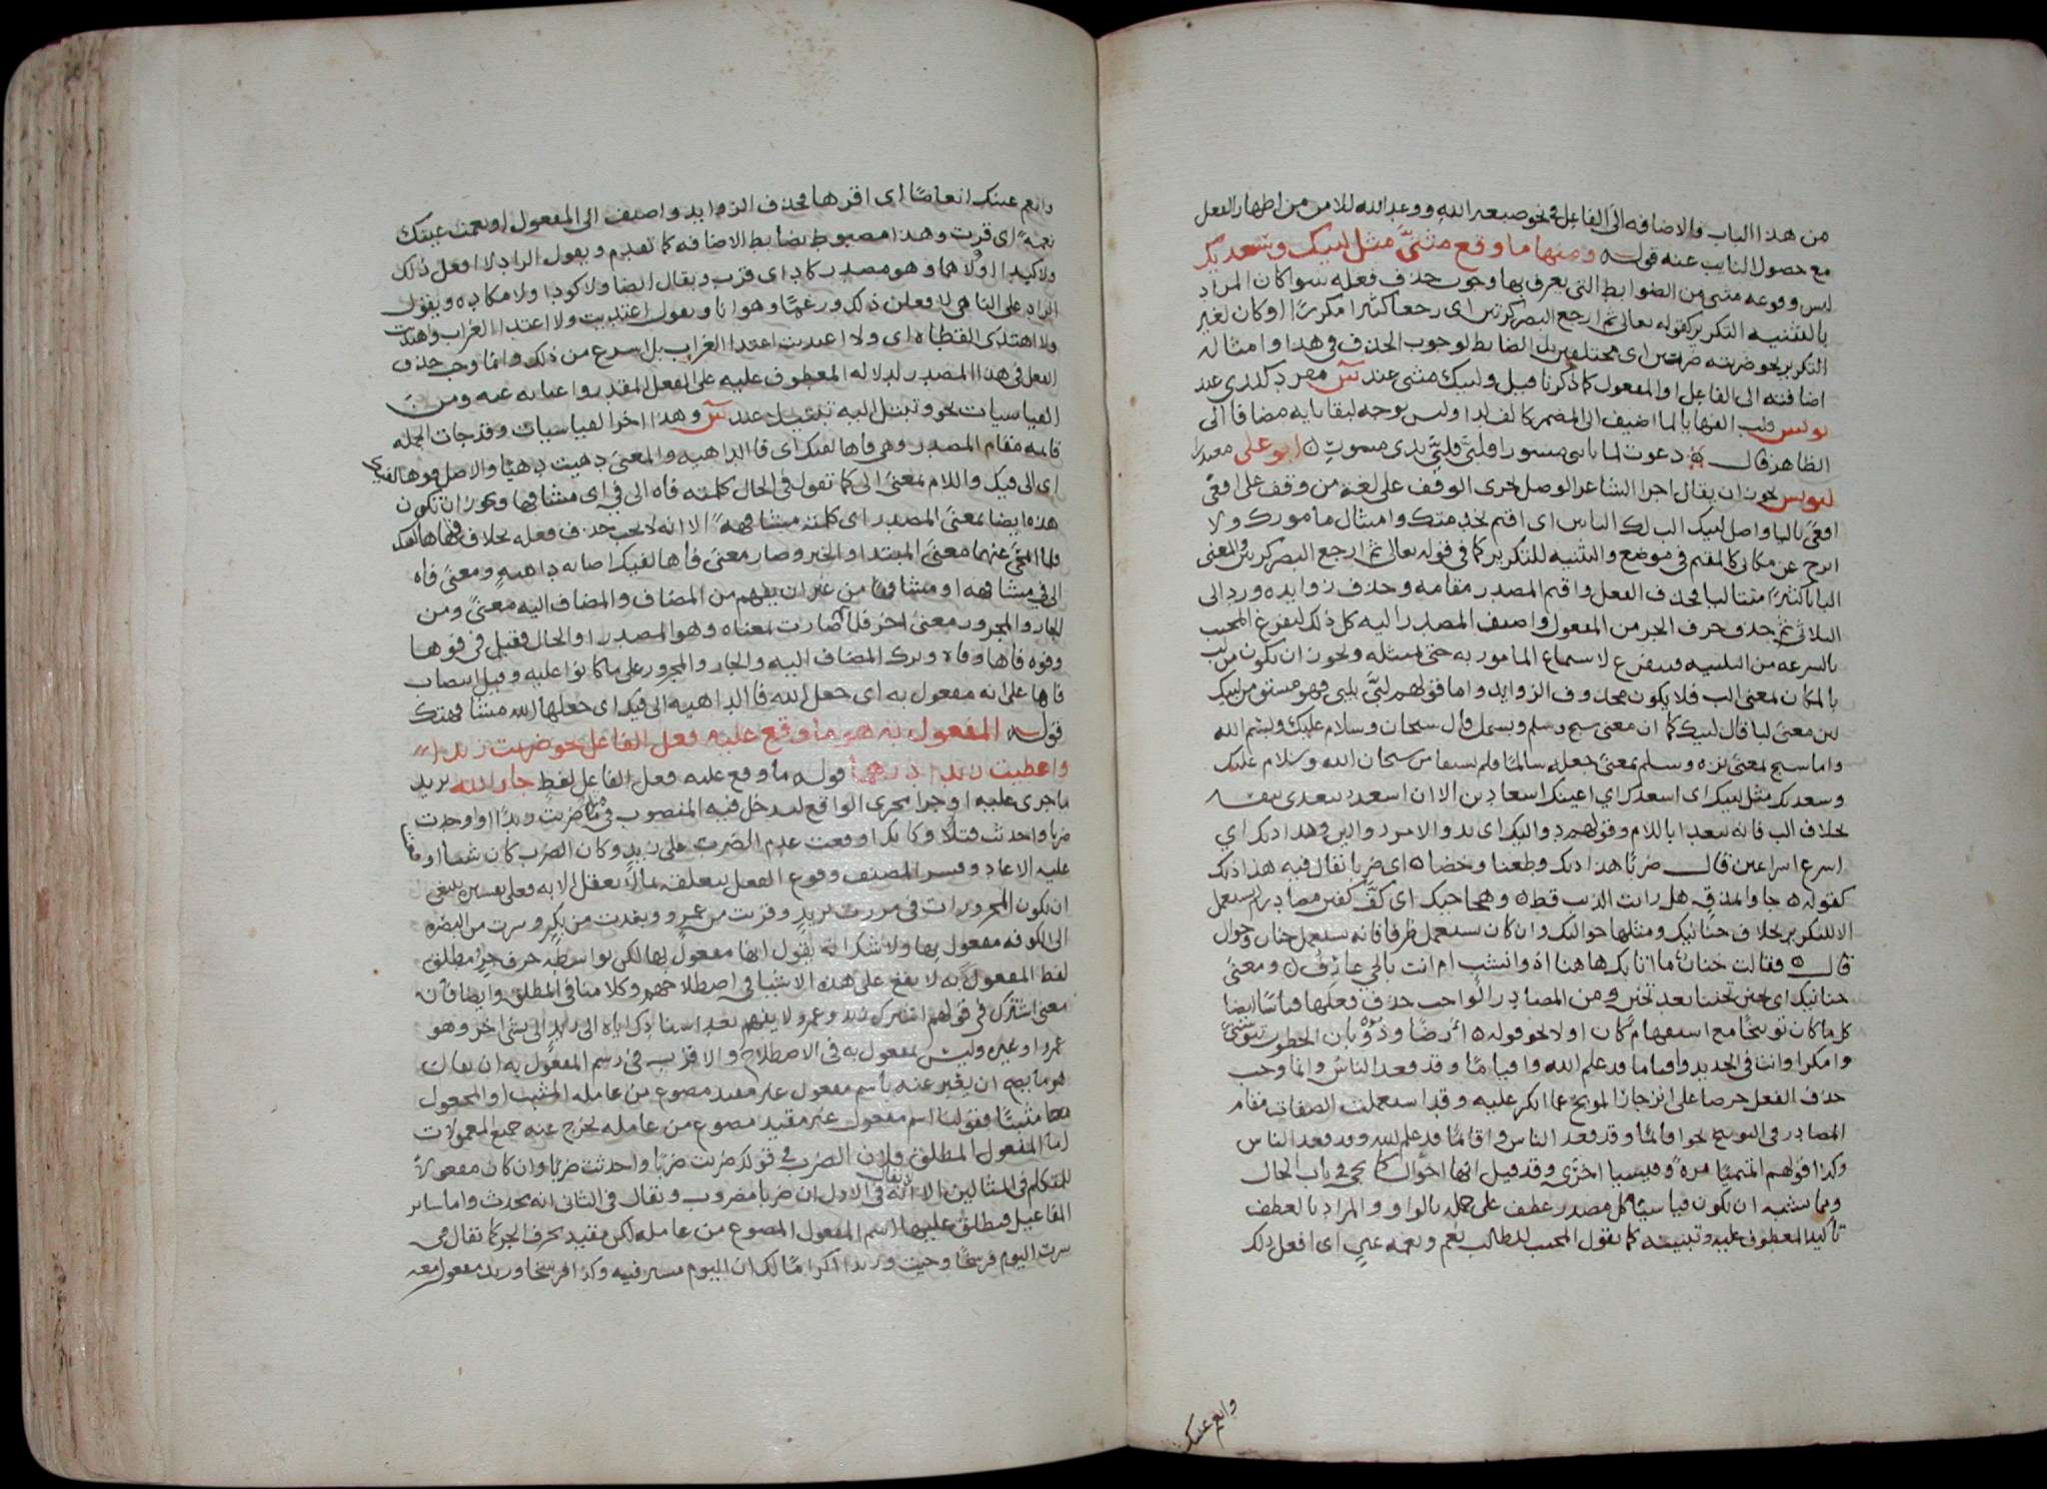 من هذا الباب والاضافه الى الفاعل في نحو صبغه الله ووعد الله للامن من اظهار الفعل
مع حصول النايب عنه قوله ومنها ما وقع مثنى مثل لبيك وسعديك
ليس وقوعه مثنى من الضوابط التى يعرف بها وجوب حذف فعله سوا كان المراد
بالتثنيه التكرير كقوله تعالى ثم ارجع البصر كرتين اى رجعا كثيرا مكررا او كان لغير
التكرير نحو ضربته ضربتين اى مختلفين بل الضابط لوجوب الحذف فى هذا وامثاله
اضافته الى الفاعل او المفعول كما ذكرنا قبل ولبيك مثنى عند س مفرد كلدى عند
يونس قلب الفها يا لما اضيف الى المضمر كالف لدا وليس بوجه لبقا يايه مضافا الى
الظاهر قال دعوت لما نابنى مسورا فلبى فلبى يدى مسور ابو على معتذرا
ليونس يجوز ان يقال اجرا الشاعر الوصل مجرى الوقف على لغة من وقف على افعى
افعى باليا واصل لبيك الب لك البابين اى اقيم لخدمتك وامتثال مامورك ولا
ابرح عن مكانى كالمقيم فى موضع والتثنيه للتكرير كما فى قوله تعالى ثم ارجع البصر كرتين والمعنى
البابا كثيرا متتاليا فحذف الفعل واقيم المصدر مقامه وحذف زوايده ورد الى
الثلاثى ثم حذف حرف الجر من المفعول واضيف المصدر اليه كل ذلك ليفرغ المجيب
بالسرعه من التلبيه فيتفرغ لاستماع المامور به حتى يمتثله ويجوز ان يكون من لب
بالمكان بمعنى الب فلا يكون محذوف الزوايد واما قولهم لبى يلبى فهو مشتق من لبيك
لان معنى لبا قال لبيك كما ان معنى سبح وسلم وبسمل قال سبحان وسلام عليك وبسم الله
واما سبح بمعنى نزه وسلم بمعنى جعله سالما فلم يشتقا من سبحان الله وسلام عليك
وسعديك مثل لبيك اى اسعدك اي اعينك اسعادين الا ان اسعد يتعدى بنفسه
بخلاف الب فانه يتعدا باللام وقولهم دواليك اى تداول الامور دوالين وهذاذيك اي
اسرع اسراعين قال ضربا هذاذيك وطعنا وخضا اى ضربا يقال فيه هذاذيك
كقوله جاوا بمذق هل رايت الذيب قط وهجاجيك اى كف كفين مصادر لم تستعمل
الا للتكرير بخلاف حنانيك ومثلها حواليك وان كان يستعمل ظرفا فانه يستعمل حنان وحوال
قال فقالت حنان ما اتا بك هاهنا اذو انسب ام انت بالحي عارف ومعنى
حنانيك اى تحنن تحننا بعد تحنن ومن المصادر الواجب حذف فعلها قياسا ايضا
كل ما كان توبيخا مع استفهام كان او لا نحو قوله ارضا وذؤبان الخطوب تنوشني
وامكرا وانت فى الحديد واقياما قد علم الله واقياما وقد قعد الناس وانما وجب
حذف الفعل حرصا على انزجار الموبخ عما انكر عليه وقد استعملت الصفات مقام
المصادر فى التوبيخ نحو اقايما وقد قعد الناس واقايما قد علم الله وقد قعد الناس
وكذا قولهم اتميميا مرة وقيسيا اخرى وقد قيل انها احوال كما يجى فى باب الحال
ومما يشبه ان يكون قياسيا كل مصدر عطف على جمله بالواو والمراد بالعطف
تاكيد المعطوف عليه وتبيينه كما يقول المجيب للطالب نعم ونعمه عين اى افعل ذلك
وانعم عينك
وانعم عينك انعاما اى اقرها فحذف الزوايد واضيف الى المفعول او نعمت عينك
نعمه اى قرت وهذا مضبوط بضابط الاضافه كما تقدم ويقول الراد لا افعل ذلك
ولا كيدا ولا هما وهو مصدر كاد اى قرب ويقال ايضا ولا كودا ولا مكاده ويقول
الراد على الناهى لافعلن ذلك ورغما وهوانا ويقول اهتديت ولا اهتدا الغراب واهتديت
ولا اهتدى القطاه اى ولا اهتديت اهتدا الغراب بل اسرع من ذلك وانما وجب حذف
الفعل فى هذا المصدر لدلاله المعطوف عليه على الفعل المقدر واغنايه عنه ومن
القياسيات نحو وتبتل اليه تبتيلا عند س وهذا اخر القياسيات وقد جات الجمله
قايمه مقام المصدر وهى فاها لفيك اى فا الداهيه والمعنى دهيت دهيا والاصل فوها لفيك
اى الى فيك واللام بمعنى الى كما تقول فى الحال كلمته فاه الى فى اى مشافها ويجوز ان يكون
هذه ايضا بمعنى المصدر اى كلمته مشافهة الا انه لا يجب حذف فعله بخلاف فاها لفيك
فلما انمحى عنهما معنى المبتدا والخبر وصار معنى فاها لفيك اصابه داهيه ومعنى فاه
الى فى مشافهه او مشافها من غير ان يفهم من المضاف والمضاف اليه معنى ومن
الجار والمجرور معنى اخر فلما صارت بمعناه وهو المصدر او الحال فقيل فى فوها
وفوه فاها وفاه وترك المضاف اليه والجار والمجرور على ما كانوا عليه وقيل انتصاب
فاها على انه مفعول به اى جعل الله فا الداهيه الى فيك اى جعلها الله مشافهتك
قوله المفعول به هو ما وقع عليه فعل الفاعل نحو ضربت زيدا
واعطيت زيدا درهما قوله ما وقع عليه فعل الفاعل لفظ جار الله يريد
ما جرى عليه اوجرا مجرى الواقع ليدخل فيه المنصوب فى ما ضربت زيدا او اوجدت
ضربا واحدثت قتلا وكانك اوقعت عدم الضرب على زيد وكان الضرب كان شيا اوقعت
عليه الايجاد وفسر المصنف وقوع الفعل بتعلقه بما لا يعقل الا به فعلى تفسيره ينبغى
ان يكون المجرورات فى مررت بزيد وقربت من عمرو وبعدت من بكر وسرت من البصره
الى الكوفه مفعولا بها ولا شك انه يقول انها مفعول بها لكن بواسطه حرف جر ومطلق
لفظ المفعول به لا يقع على هذه الاشيا فى اصطلاحهم وكلامنا فى المطلق وايضا فان
معنى اشترك فى قولهم اشترك زيد وعمرو لا يفهم بعد اسنادك اياه الى زيد الى شى اخر وهو
عمرو او غيره وليس بمفعول به فى الاصطلاح والاقرب فى رسم المفعول به ان يقال
هو ما يصح ان يعبر عنه باسم مفعول غير مقيد مصوغ من عامله المثبت او المجعول
مثبتا فقولنا اسم مفعول غير مقيد مصوغ من عامله يخرج عنه جميع المعمولات
اما المفعول المطلق فلان الضرب فى قولك ضربت ضربا واحدثت ضربا وان كان مفعولا
للمتكلم فى المثالين الا انه يقال فى الاول ان ضربا مضروب ويقال فى الثانى انه محدث واما ساير
المفاعيل فيطلق عليها اسم المفعول المصوغ من عامله لكن مقيد بحرف الجر كما تقال فى
سرت اليوم فرسخا وجيت وزيدا اكراما لك ان اليوم مسير فيه وكذا فرسخا وزيد مفعول معه